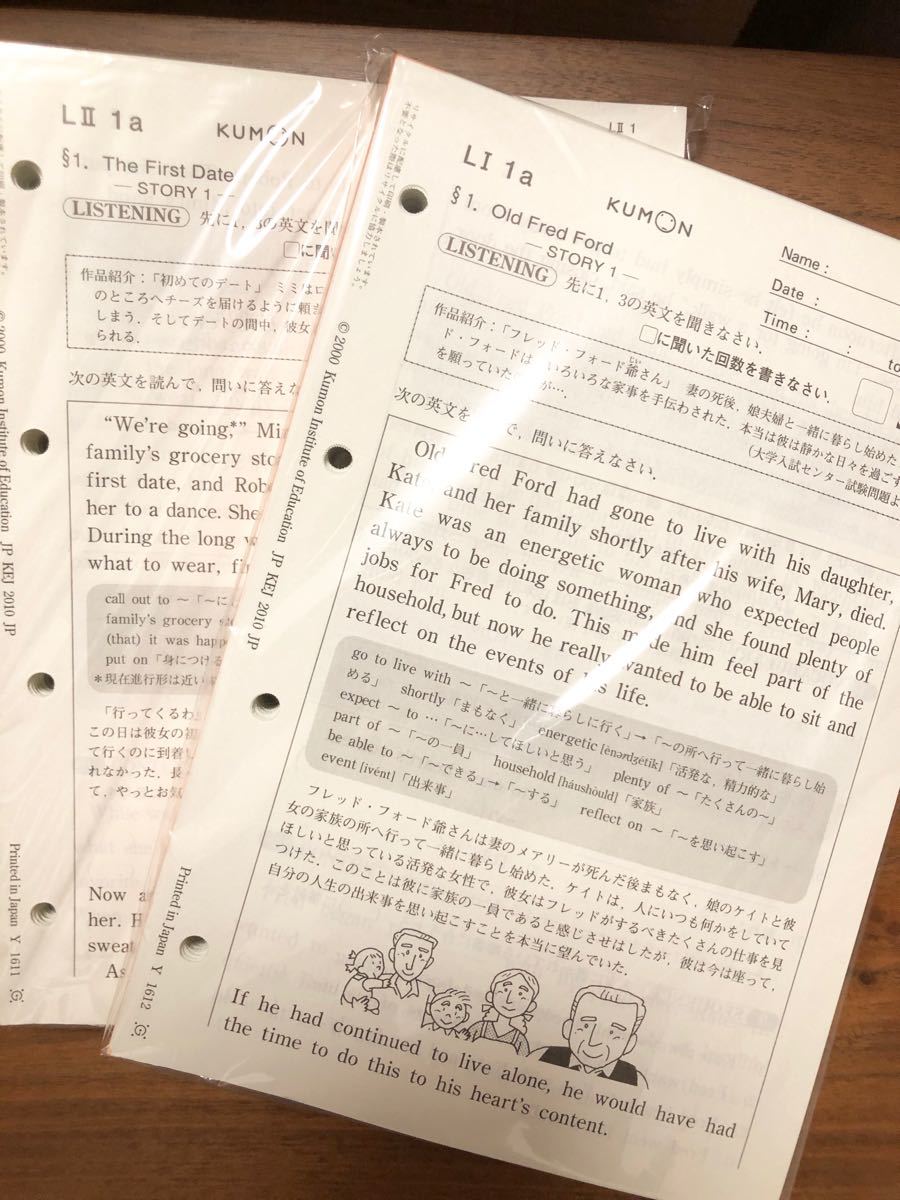 LⅡ 1a
KUMON
§1. The First Date
— STORY 1 —
LISTENING 先に1, 3の英文を聞
□に聞い
作品紹介:「初めてのデート」 ミミはロ
のところへチーズを届けるように頼ま
しまう. そしてデートの間中, 彼女
られる.
次の英文を読んで, 問いに答えな
“We're going,*”
family's grocery sto
first date, and Rob
her to a dance. She
During the long w
what to wear, fi
call out to ~「~に
family's grocery sto
(that) it was happ
put on「身につける
*現在進行形は近い
「行ってくるわ」
この日は彼女の初
て行くのに到着し
れなかった. 長
て, やっとお気
Now a
her. H
sweat
As
© 2000 Kumon Institute of Education JP KEJ 2010 JP
Printed in Japan Y 1611
LⅡ 1
LⅠ 1a
KUMON
§1. Old Fred Ford
— STORY 1 —
LISTENING 先に1, 3の英文を聞きなさい.
□に聞いた回数を書きなさい.
Name :
Date :
Time : : to
作品紹介:「フレッド・フォード爺さん」 妻の死後, 娘夫婦と一緒に暮らし始めた
ド・フォードは, いろいろな家事を手伝わされた. 本当は彼は静かな日々を過ごす
を願っていたが….
(大学入試センター試験問題よ
次の英文を で, 問いに答えなさい.
Old Fred Ford had gone to live with his daughter,
Kate and her family shortly after his wife, Mary, died.
Kate was an energetic woman who expected people
always to be doing something, and she found plenty of
jobs for Fred to do. This made him feel part of the
household, but now he really wanted to be able to sit and
reflect on the events of his life.
go to live with ~「~と一緒に暮らしに行く」→「~の所へ行って一緒に暮らし始
める」 shortly「まもなく」 energetic [ènərdʒétik]「活発な, 精力的な」
expect ~ to …「~に…してほしいと思う」 plenty of ~「たくさんの~」
part of ~「~の一員」 household [háushòuld]「家族」
be able to ~「~できる」→「~する」 reflect on ~「~を思い起こす」
event [ivént]「出来事」
フレッド・フォード爺さんは妻のメアリーが死んだ後まもなく, 娘のケイトと彼
女の家族の所へ行って一緒に暮らし始めた. ケイトは, 人にいつも何かをしていて
ほしいと思っている活発な女性で, 彼女はフレッドがするべきたくさんの仕事を見
つけた. このことは彼に家族の一員であると感じさせはしたが, 彼は今は座って,
自分の人生の出来事を思い起こすことを本当に望んでいた.
If he had continued to live alone, he would have had
the time to do this to his heart's content.
© 2000 Kumon Institute of Education JP KEJ 2010 JP
Printed in Japan Y 1612